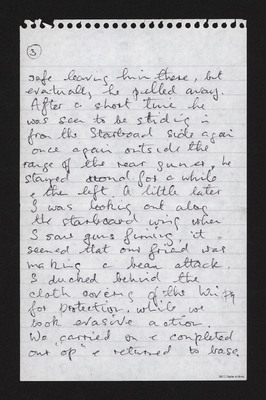 3
safe leaving him there, but
eventually he pulled away.
After a short time he
was seen to be sliding in
from the Starboard side again
once again outside the
range of the rear gunner, he
stayed around for a while
& then left. A little later
I was looking out along
the starboard wing when
I saw guns firing, it
seemed that our friend was
making a beam attack.
I ducked behind the
cloth covering of the Wimpy
for protection, while we
took evasive action.
We carried on & completed
our op & returned to base.